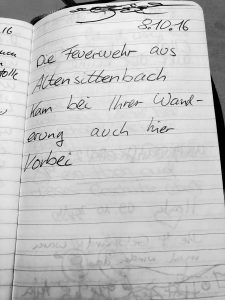 .16
8.10.16
Die Feuerwehr aus
Altensittenbach
kam bei Ihrer Wand-
erung auch hier
Vorbei